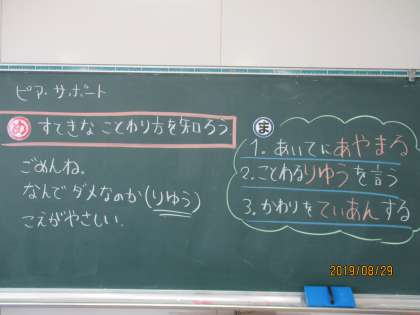 ピア・サポート
め すてきな ことわり方を知ろう
ごめんね。
なんで ダメなのか(りゆう)
こえがやさしい.
ま
1. あいてにあやまる
2. ことわるりゆうを言う
3. かわりをていあんする
2019/08/29